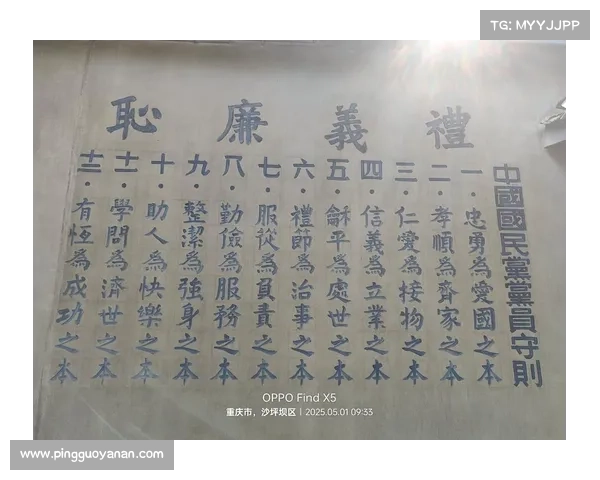 TG: MYYJJPP
禮義廉恥
中國國民黨黨員守則
一·忠勇為愛國之本
二·孝順為齊家之本
三·仁愛為接物之本
四·信義為立業之本
五·龢平為處世之本
六·禮節為治事之本
七·服從為負責之本
八·勤儉為服務之本
九·整潔為強身之本
十·助人為快樂之本
十一·學問為濟世之本
十二·有恆為成功之本
OPPO Find X5
重庆市，沙坪坝区 | 2025.05.01 09:33
www.pingguoyanan.com